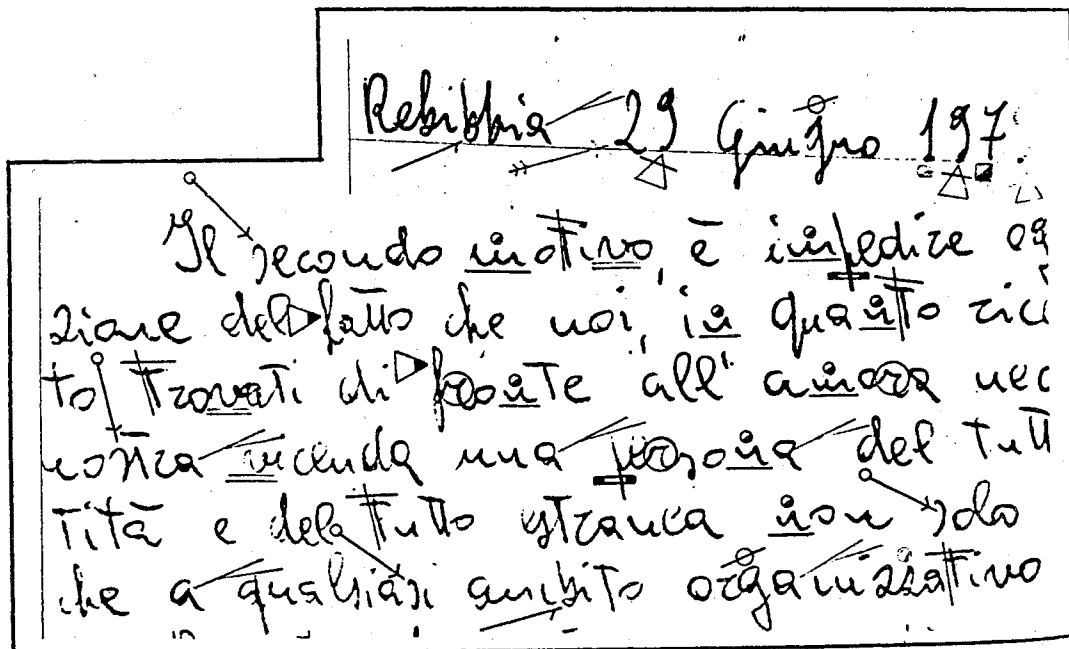 Rebibbia 29 Giugno 197
Il secondo motivo, è impedire og
zione del fatto che noi, in quanto rici
to trovati di fronte all' amara nec
nostra vicenda una persona del tutt
tità e del tutto estranea non solo
che a qualsiasi ambito organizzativo